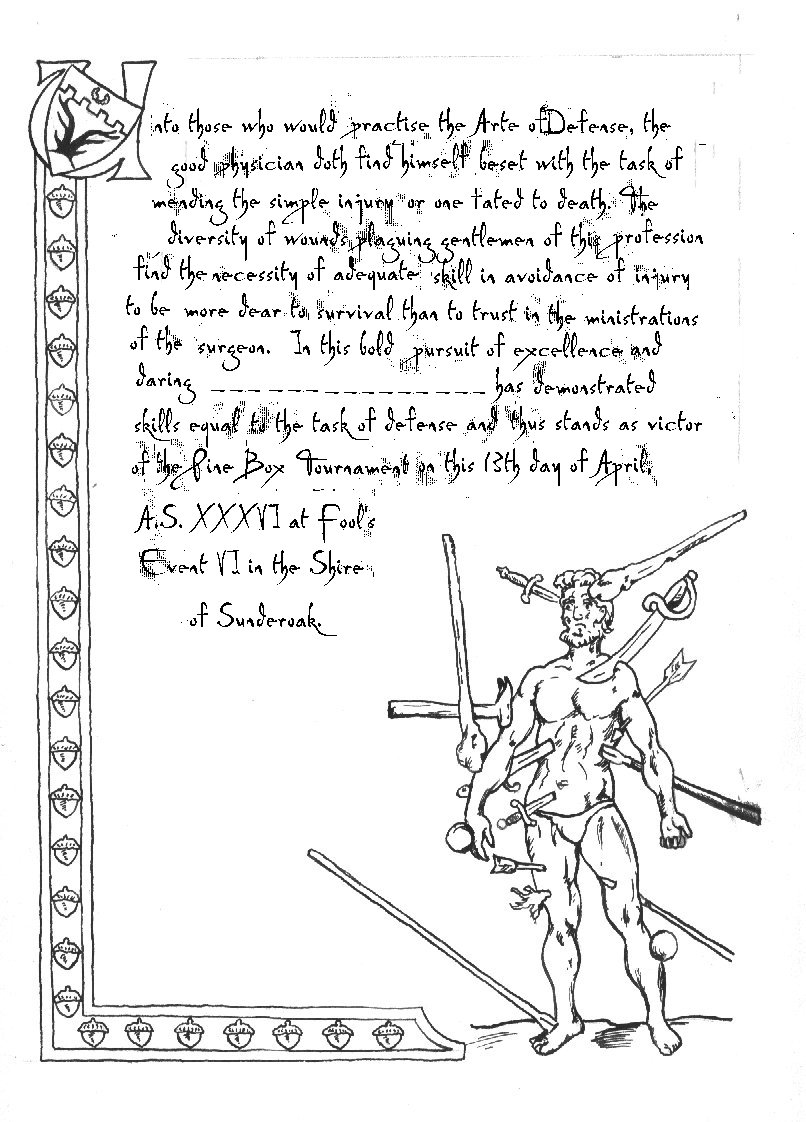 Unto those who would practise the Arte of Defense, the
good physician doth find himself beset with the task of
mending the simple injury or one fated to death. The
diversity of wounds plaguing gentlemen of this profession
find the necessity of adequate skill in avoidance of injury
to be more dear to survival than to trust in the ministrations
of the surgeon. In this bold pursuit of excellence and
daring _ _ _ _ _ _ _ _ _ _ _ _ _ has demonstrated
skills equal to the task of defense and thus stands as victor
of the Pine Box Tournament on this 13th day of April,
A.S. XXXVI at Fool's
Event VI in the Shire
of Sunderoak.